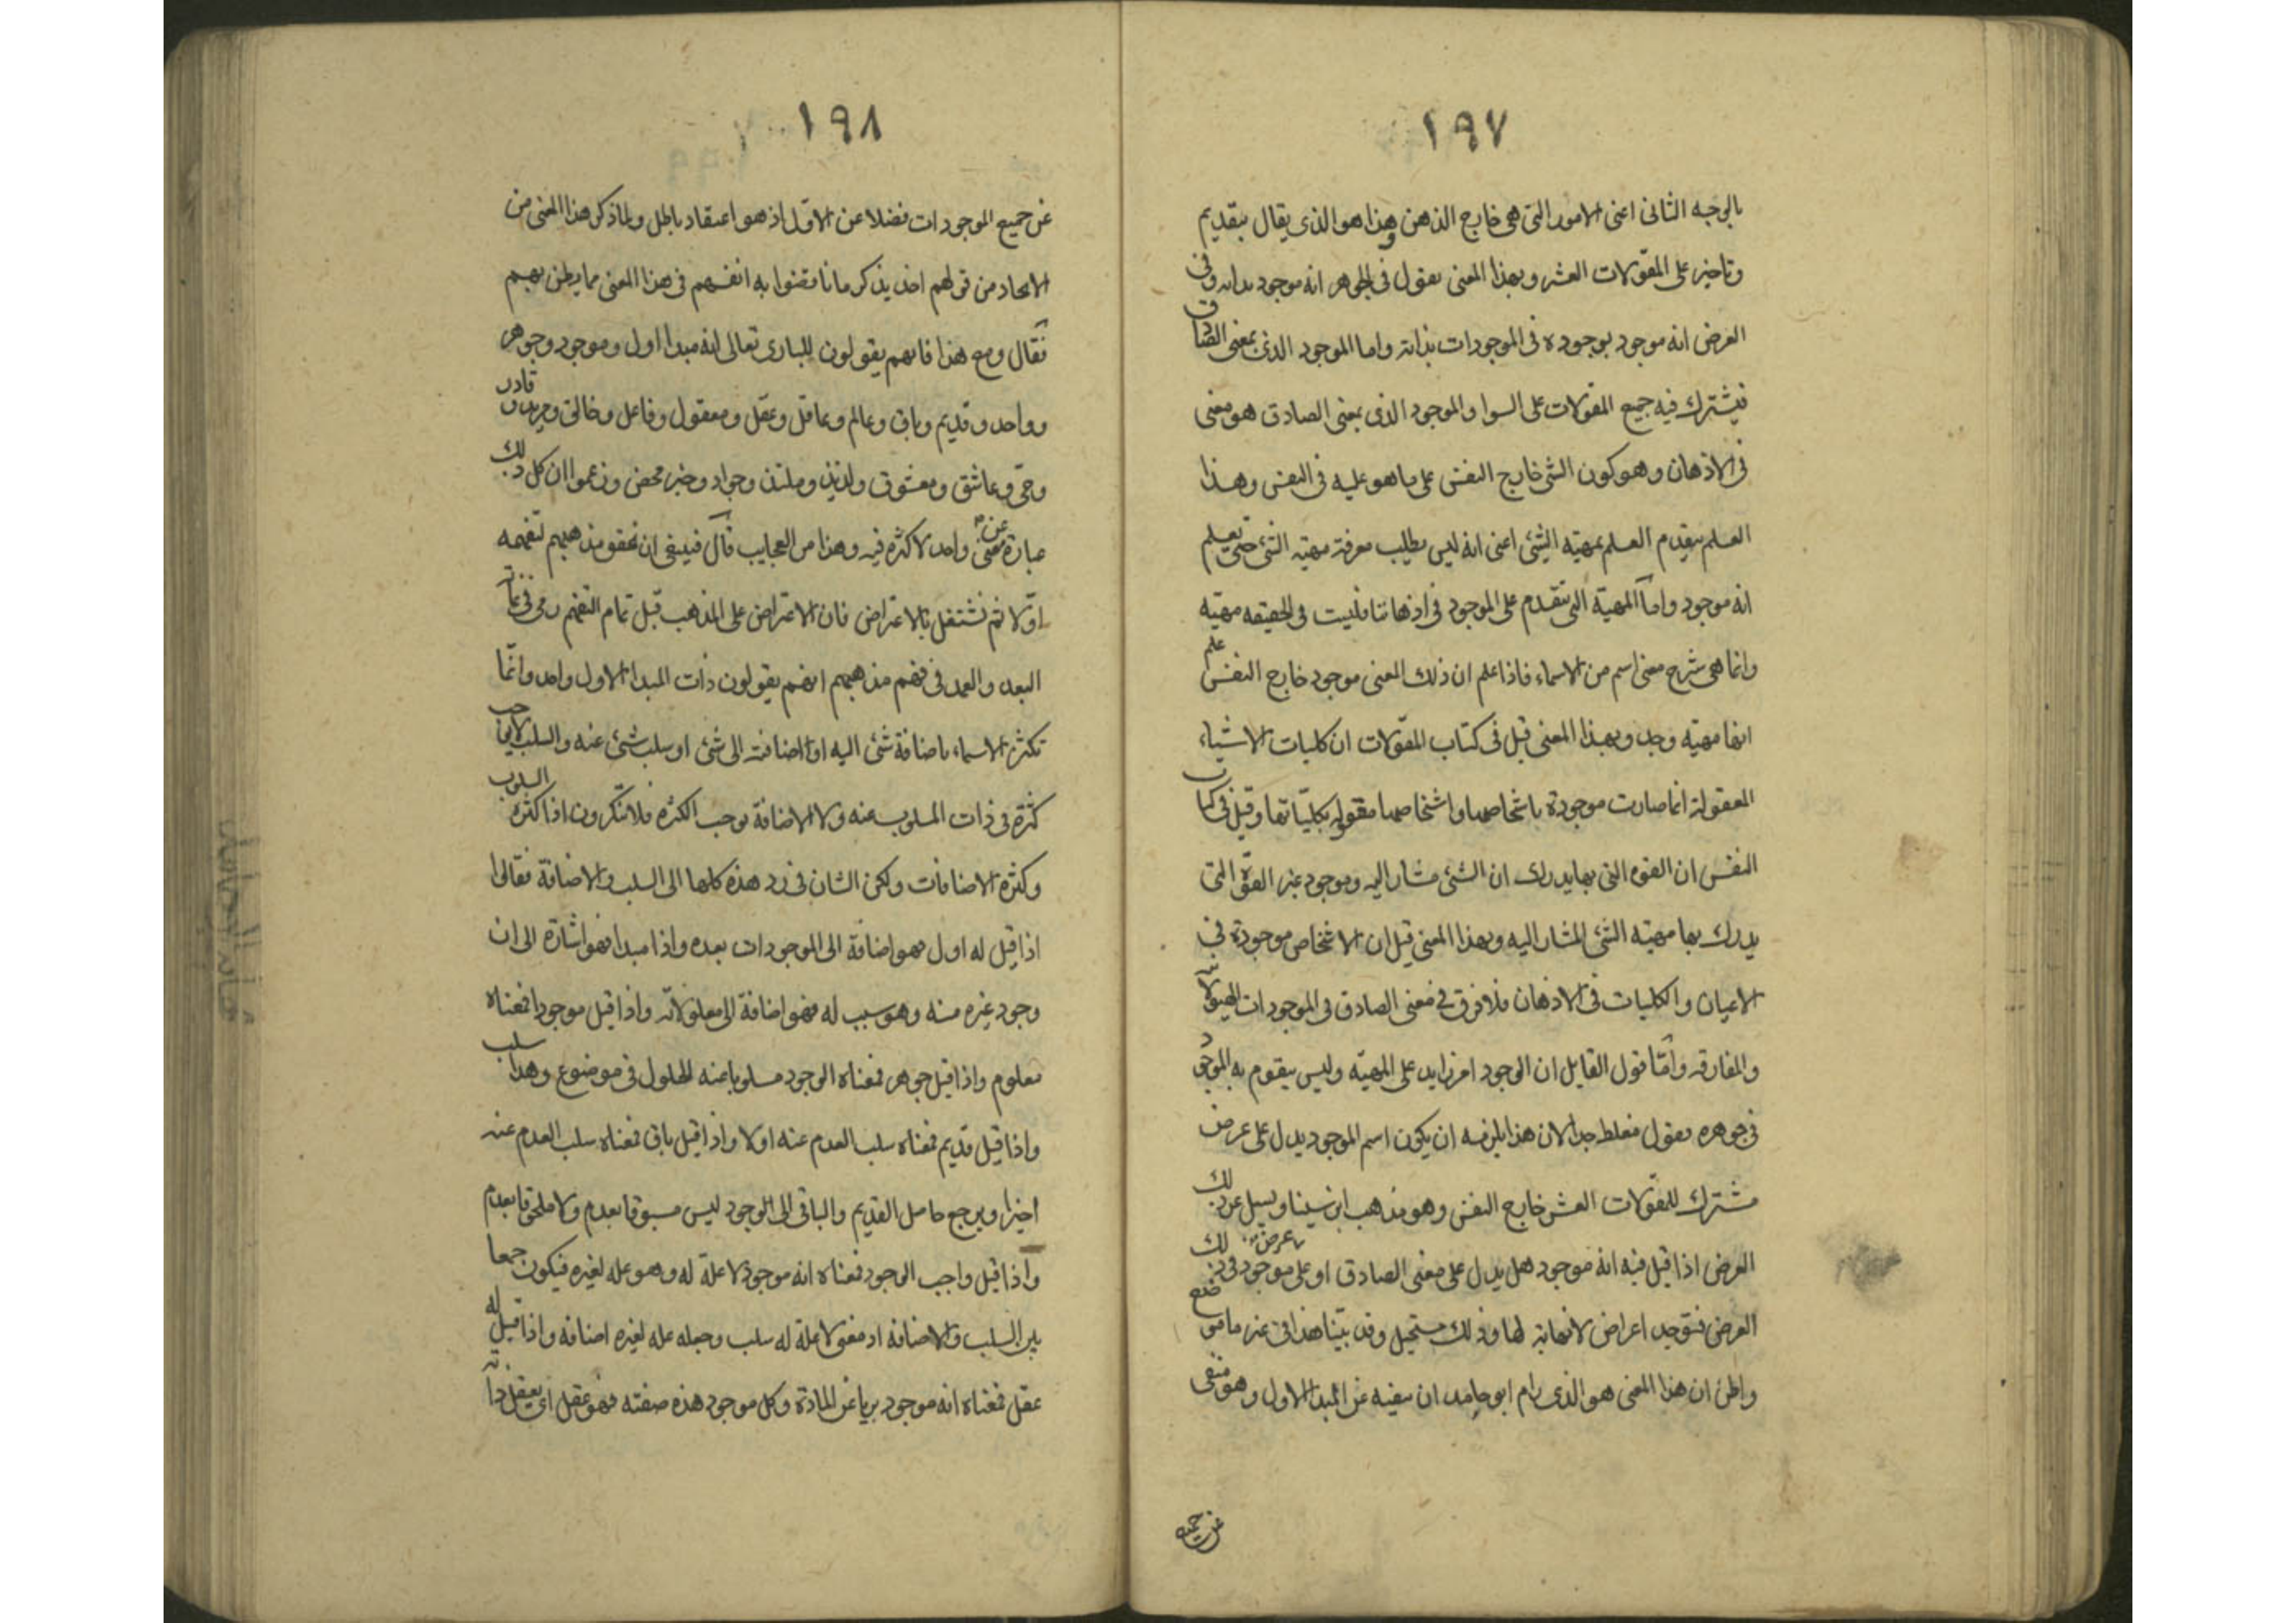 ١٩٧
بالوجه الثانى اعنى الامور التى هى خارج الذهن وهذا هو الذى يقال بتقديم
وتاخير على المقولات العشر وبهذا المعنى نقول فى الجوهر انه موجود بذاته وفى
العرض انه موجود بوجوده فى الموجودات بذاته واما الموجود الذى بمعنى الصادق
فيشترك فيه جميع المقولات على السوا والموجود الذى بمعنى الصادق هو معنى
فى الاذهان وهو كون الشى خارج النفس على ما هو عليه فى النفس وهذا
العلم يتقدم العلم بمهيّة الشئ اعنى انه ليس يطلب معرفة مهيّة الشئ حتى يعلم
انه موجود واما المهيّة التى تتقدم على الموجود فى اذهاننا فليست فى الحقيقه مهيّة
وانما هى شرح معنى اسم من الاسماء فاذا علم ان ذلك المعنى موجود خارج النفس علم
انها مهيّة وحد وبهذا المعنى قيل فى كتاب المقولات ان كليات الاشياء
المعقولة انما صارت موجودة باشخاصها واشخاصها معقولة بكليّاتها وقيل فى كتاب
النفس ان القوه التى بها يدرك ان الشئ مشار اليه وموجود غير القوّة التى
يدرك بها مهيّة الشئ المشار اليه وبهذا المعنى قيل ان الاشخاص موجودة فى
الاعيان والكليات فى الاذهان فلا فرق فى معنى الصادق فى الموجودات الهيولانية
والمفارقه وامّا قول القايل ان الوجود امر زايد على المهيّه وليس يتقوم به الموجود
فى جوهره فقول مغلط جدا لان هذا يلزمه ان يكون اسم الموجود يدل على عرض
مشترك للمقولات العشر خارج النفس وهو مذهب ابن سينا ويسيل عن ذلك
العرض اذا قيل فيه انه موجود هل يدل على معنى الصادق او على عرض موجود فى ذلك
العرض فتوجد اعراض لا نهاية لها وذلك مستحيل وقد بيّنا هذا فى غير ما موضع
واظن ان هذا المعنى هو الذى رام ابو حامد ان ينفيه عن المبدا الاول وهو منفى
عن جميع
١٩٨
عن جميع الموجودات فضلا عن الاول اذ هو اعتقاد باطل ولما ذكر هذا المعنى من
الاتحاد من قولهم اخذ يذكر ما ناقضوا به انفسهم فى هذا المعنى مما يظن بهم
فقال ومع هذا فانهم يقولون للبارى تعالى انه مبدا اول وموجود وجوهر
وواحد وقديم وباق وعالم وعاقل وعقل ومعقول وفاعل وخالق ومريد وقادر
وحىّ وعاشق ومعشوق ولذيذ وملتذ وجواد وخير محض وزعموا ان كل ذلك
عبارة عن معنى واحد لا كثرة فيه وهذا من العجايب قال فينبغى ان نحقق مذهبهم لتفهمه
اوّلا ثم نشتغل بالاعتراض فان الاعتراض على المذهب قبل تمام التفهم رمى فى عماية
البعد والعمد فى فهم مذهبهم انهم يقولون ذات المبدا الاول واحد وانّما
تكثر الاسماء باضافة شئ اليه او اضافته الى شئ او سلب شئ عنه والسلب لا يوجب
كثرة فى ذات المسلوب عنه ولا الاضافة توجب الكثره فلا تنكرون اذا كثرة السلوب
وكثرة الاضافات ولكن الشان فى رد هذه كلها الى السلب والاضافة فقالوا
اذا قيل له اول فهو اضافة الى الموجودات بعده واذا مبدا فهو اشارة الى ان
وجود غيره منه وهو سبب له فهو اضافة الى معلولاته واذا قيل موجود فمعناه
معلوم واذا قيل جوهر فمعناه الوجود مسلوبا عنه الحلول فى موضوع وهذا سلب
واذا قيل قديم فمعناه سلب العدم عنه اولا واذا قيل باق فمعناه سلب العدم عنه
اخيرا ويرجع حاصل القديم والباقى الى الوجود ليس مسبوقا بعدم ولا ملحوقا بعدم
واذا قيل واجب الوجود فمعناه انه موجود لا علة له وهو عله لغيره فيكون جمعا
بين السلب والاضافه اذ معنى لا علة له سلب وجعله عله لغيره اضافه واذا قيل له
عقل فمعناه انه موجود بريا عن المادة وكل موجود هذه صفته فهو عقل اى يعقل ذاته